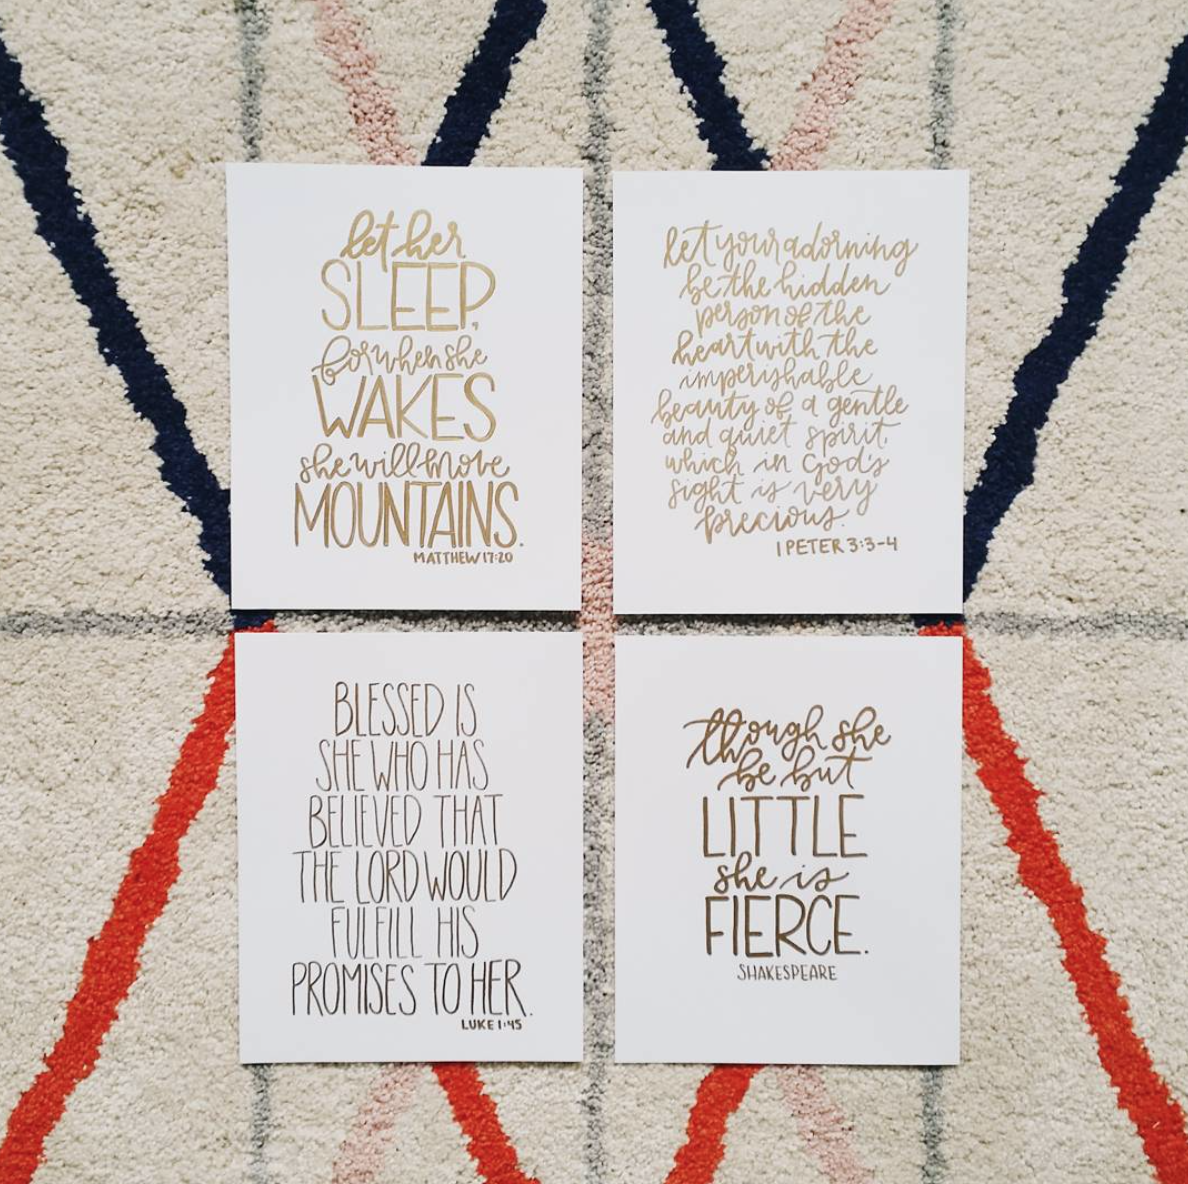 let her
SLEEP,
for when she
WAKES
she will move
MOUNTAINS.
MATTHEW 17:20
let your adorning
be the hidden
person of the
heart with the
imperishable
beauty of a gentle
and quiet spirit,
which in God's
sight is very
precious.
1 PETER 3:3-4
BLESSED IS
SHE WHO HAS
BELIEVED THAT
THE LORD WOULD
FULFILL HIS
PROMISES TO HER.
LUKE 1:45
though she
be but
LITTLE
she is
FIERCE.
SHAKESPEARE